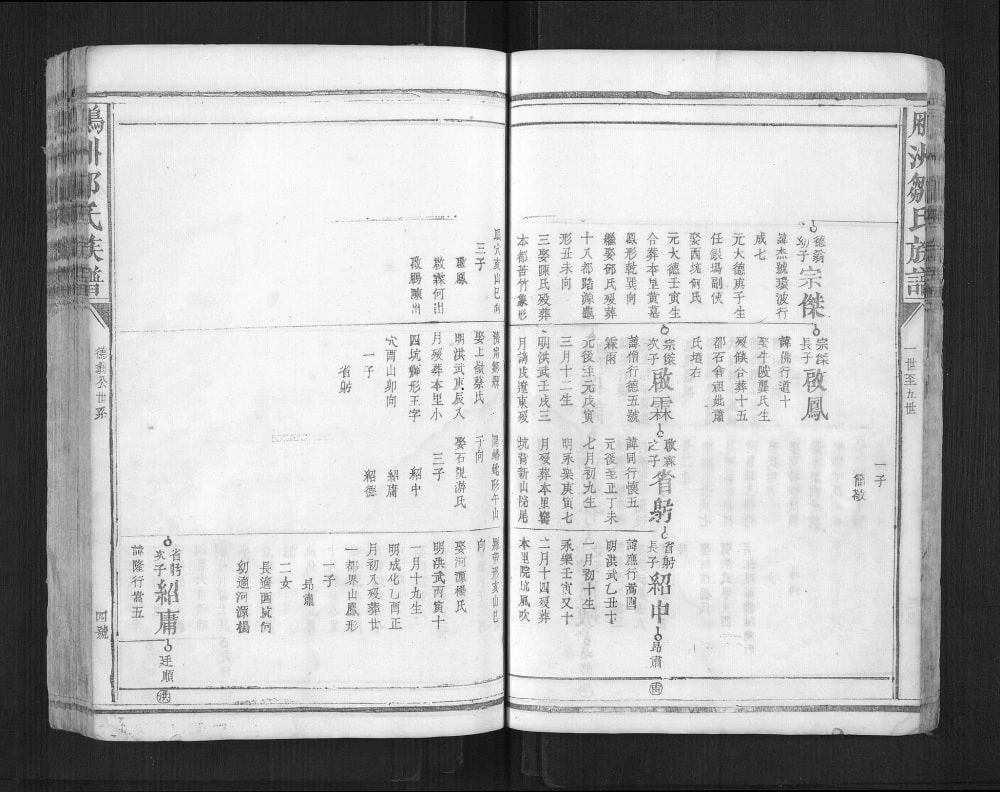 雁洲鄒氏族譜
一世至五世
一子
德翁
幼子
宗傑
諱杰號環波行
成七
元大德庚子生
任銀場副使
娶西坑何氏
元大德壬寅生
合葬本里黃墓
鳳形乾巽向
繼娶鄧氏歿葬
十八都踏源龜
形丑未向
三娶陳氏歿葬
本都苦竹象形
宗傑
長子
啟鳳
諱佛行道十
娶牛陂龔氏生
歿俱合葬十五
都石倉祖妣蕭
氏墳右
宗傑
次子
啟霖
霖雨
諱僧行德五號
元後至元戊寅
三月十二生
明洪武壬戌三
月謫戌遼東歿
啟霖
之子
省躬
諱同行懷五
元後至正丁未
七月初九生
明永樂庚寅七
月歿葬本里窰
坑背新山院尾
省躬
長子
紹中
昂肅
諱應行萬四
明洪武乙丑十
一月初十生
永樂壬寅又十
二月十四歿葬
本里院坑風吹
鳳穴亥山巳向
三子
啟鳳
啟霖何出
啟鵬陳出
娶上嶺蔡氏
明洪武庚辰八
月歿葬本里小
四坑獅形王字
穴酉山卯向
一子
省躬
子向
娶石院游氏
三子
紹中
紹庸
紹德
羅帶形亥山巳
向
娶河源楊氏
明洪武丙寅十
一月十九生
明成化乙酉正
月初八歿葬廿
一都界山鳳形
一子
昂肅
二女
長適西成何
幼適河源楊
省躬
次子
紹庸
廷順
諱隆行萬五
鴈洲鄒氏族譜
德翁公世系
四號